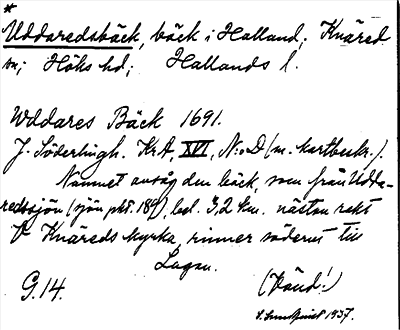 *
Uddaredsbäck, bäck i Halland; Knäred
sn; Höks hd; Hallands l.
Uddares Bäck 1691.
J. Söderlingh. Kr A, XVI, N:o D (m. kartbeskr.).
Namnet avsåg den bäck, som från Udda-
redssjön (sjön pkt 189), bel. 3,2 km. nästan rakt
V Knäreds kyrka, rinner söderut till
Lagan.
G. 14. (känd!)
1937.